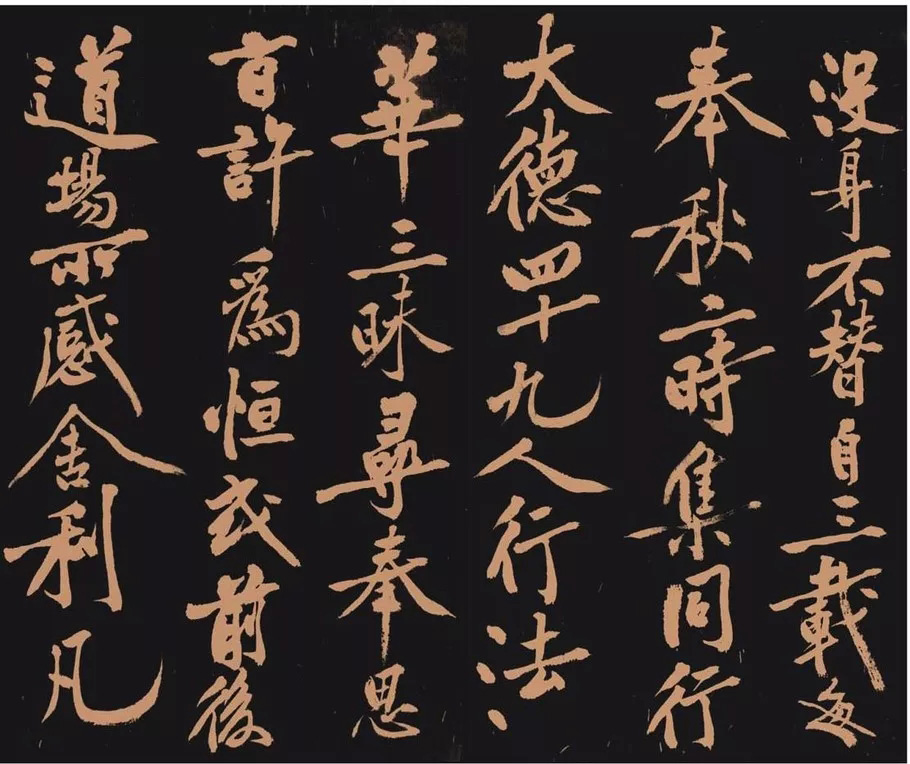 沒身不替自三載每
奉秋二時集同行
大德四十九人行法、
華三昧尋奉思
百許爲恒式前後
道場所感舍利凡